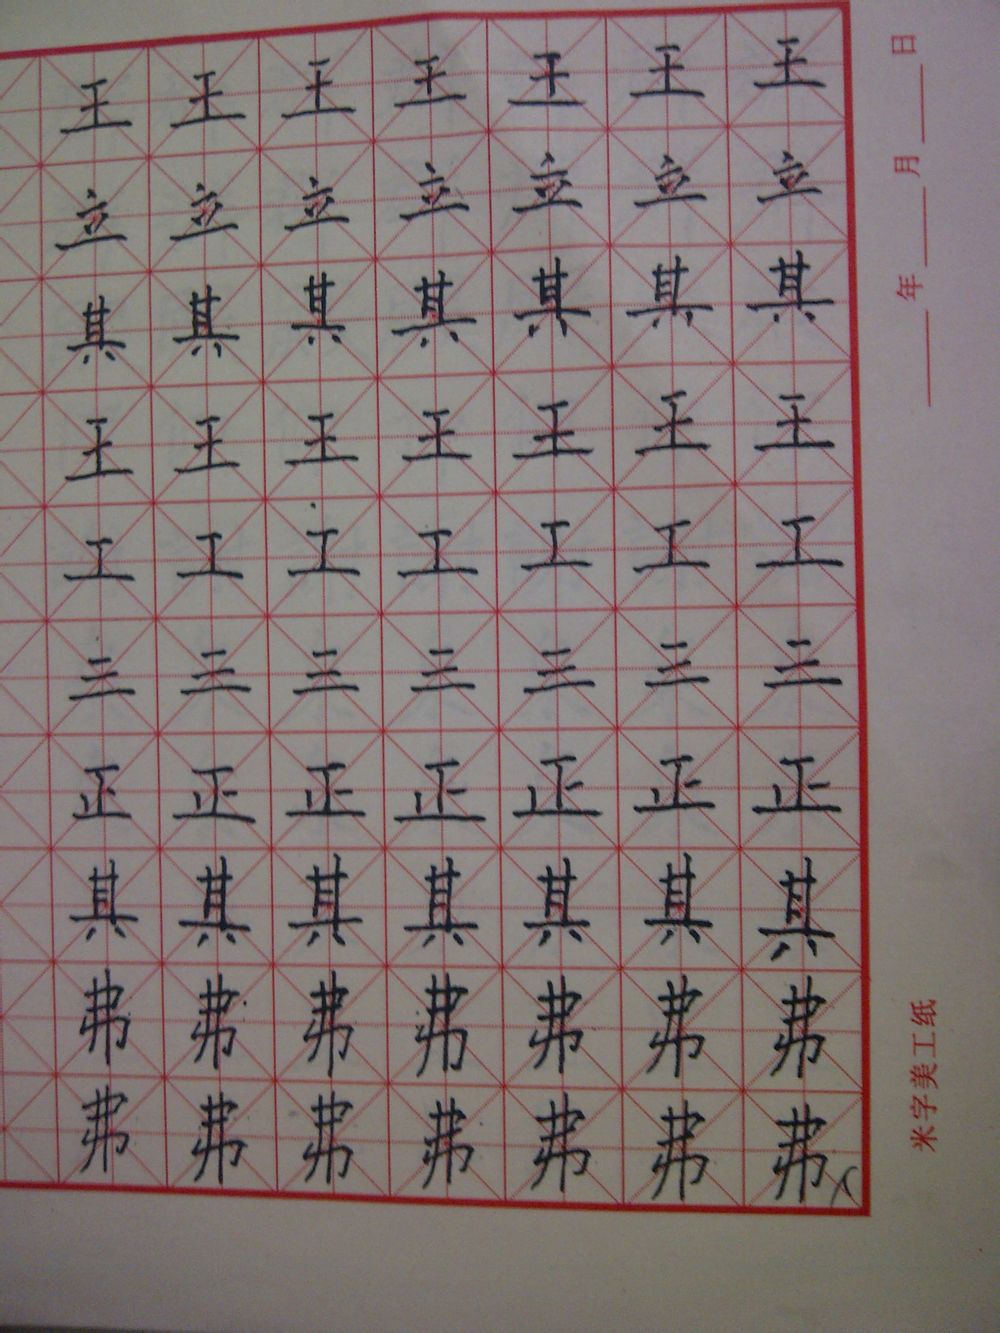 王王王王王王王
立立立立立立立
其其其其其其其
王王王王王王王
工工工工工工工
三三三三三三三
正正正正正正正
其其其其其其其
弗弗弗弗弗弗弗
弗弗弗弗弗弗弗
米字美工纸
年 月 日